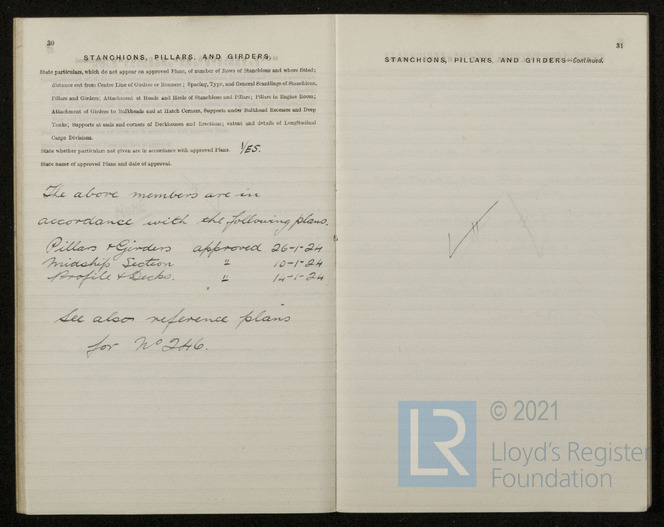 30
STANCHIONS, PILLARS, AND GIRDERS.
State particulars, which do not appear on approved Plans, of number of Rows of Stanchions and where fitted;
distance out from Centre Line of Girders or Runners; Spacing, Type, and General Scantlings of Stanchions,
Pillars and Girders; Attachment at Heads and Heels of Stanchions and Pillars; Pillars in Engine Room;
Attachment of Girders to Bulkheads and at Hatch Corners, Supports under Bulkhead Recesses and Deep
Tanks; Supports at ends and corners of Deckhouses and Erections; extent and details of Longitudinal
Cargo Divisions.
State whether particulars not given are in accordance with approved Plans. YES.
State name of approved Plans and date of approval.
The above members are in
accordance with the following plans.
Pillars & Girders approved 26-1-24
Midship Section " 10-1-24
Profile & Decks. " 14-1-24
See also reference plans
for No 246.
31
STANCHIONS, PILLARS, AND GIRDERS—Continued.
LR
© 2021
Lloyd's Register
Foundation